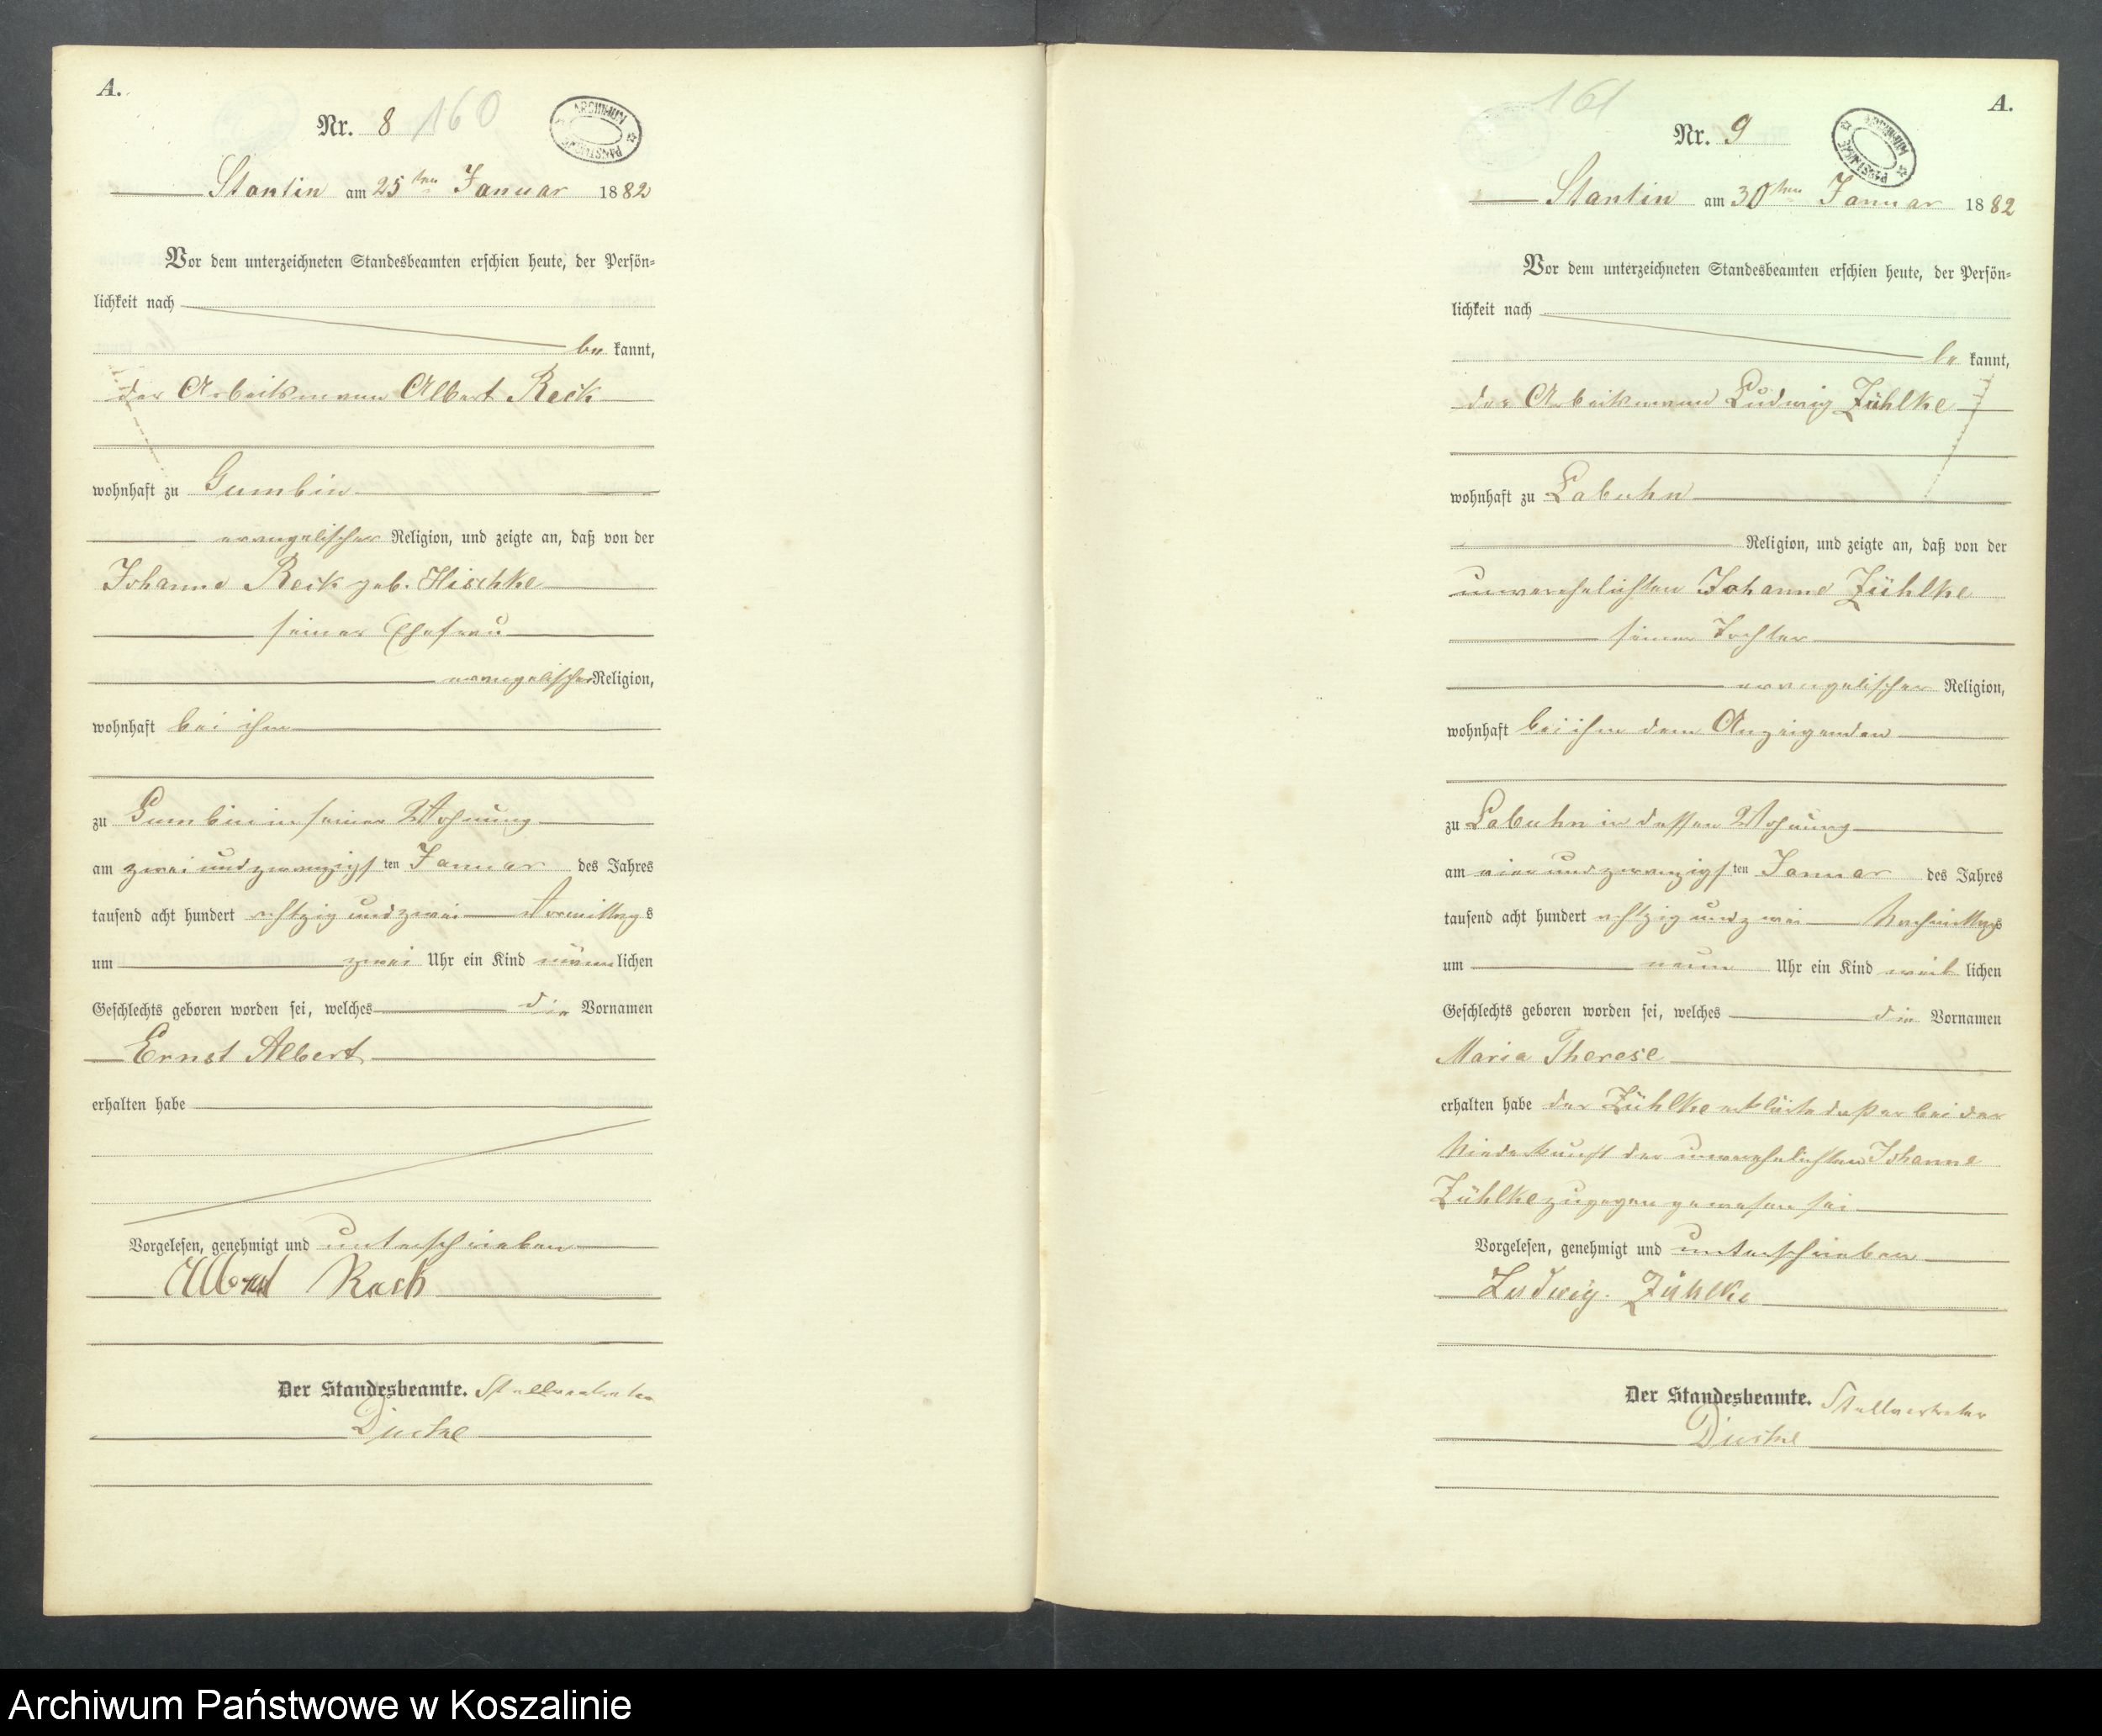 A.
Nr. 8 160
ARCHIWUM PAŃSTWOWE
Stantin am 25ten Januar 1882
Vor dem unterzeichneten Standesbeamten erschien heute, der Persön-
lichkeit nach
be kannt,
der Arbeitsmann Albert Reck
wohnhaft zu Gumbin
evangelischer Religion, und zeigte an, daß von der
Johanne Reck geb. Hischke
seiner Ehefrau
evangelischer Religion,
wohnhaft bei ihm
zu Gumbin in seiner Wohnung
am zwei und zwanzigsten Januar des Jahres
tausend acht hundert achtzig und zwei Vormittags
um zwei Uhr ein Kind männlichen
Geschlechts geboren worden sei, welches die Vornamen
Ernst Albert
erhalten habe
Vorgelesen, genehmigt und unterschrieben
Albert Reck
Der Standesbeamte. Stellvertreter
A.
161
Nr. 9
ARCHIWUM PAŃSTWOWE
Stantin am 30ten Januar 1882
Vor dem unterzeichneten Standesbeamten erschien heute, der Persön-
lichkeit nach
be kannt,
der Arbeitsmann Ludwig Zühlke
wohnhaft zu Labuhn
Religion, und zeigte an, daß von der
unverehelichten Johanne Zühlke
seiner Tochter
evangelischer Religion,
wohnhaft bei ihm dem Anzeigenden
zu Labuhn in dessen Wohnung
am vier und zwanzigsten Januar des Jahres
tausend acht hundert achtzig und zwei Nachmittags
um neun Uhr ein Kind weiblichen
Geschlechts geboren worden sei, welches die Vornamen
Maria Therese
erhalten habe der Zühlke erklärte daß er bei der
Niederkunft der unverehelichten Johanne
Zühlke zugegen gewesen sei
Vorgelesen, genehmigt und unterschrieben
Ludwig. Zühlke
Der Standesbeamte. Stellvertreter
Archiwum Państwowe w Koszalinie